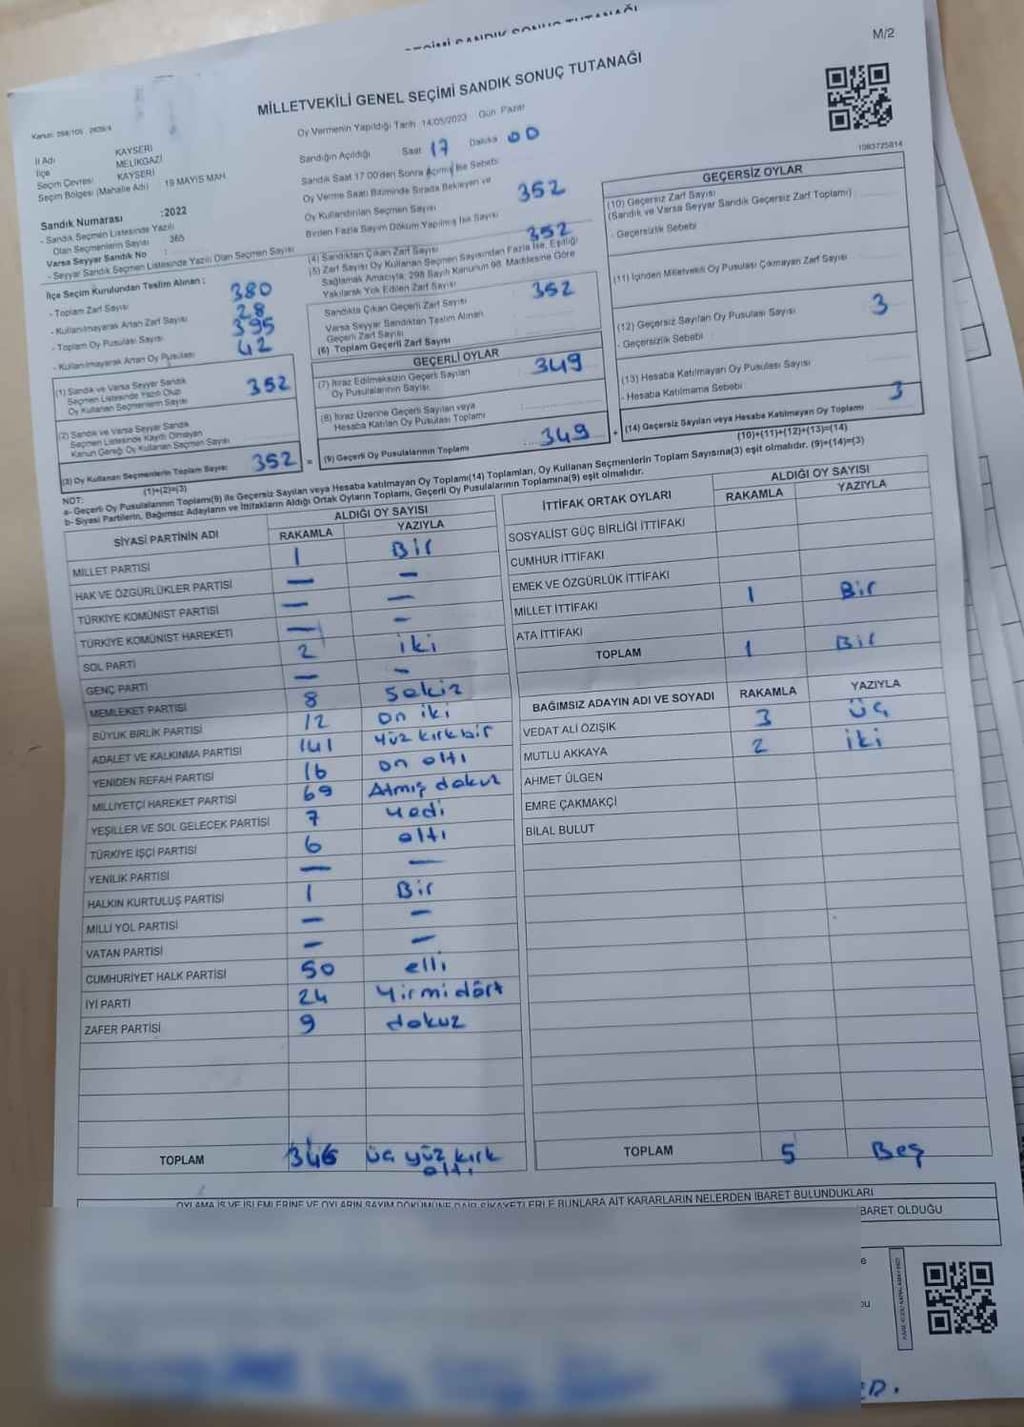 M/2
MİLLETVEKİLİ GENEL SEÇİMİ SANDIK SONUÇ TUTANAĞI
Oy Vermenin Yapıldığı Tarih 14/05/2023 Gün Pazar
1083725814
İl Adı KAYSERİ
İlçe MELİKGAZİ
Seçim Çevresi KAYSERİ
Seçim Bölgesi (Mahalle Adı) 19 MAYIS MAH.
Sandık Numarası :2022
- Sandık Seçmen Listesinde Yazılı
Olan Seçmenlerin Sayısı 365
Varsa Seyyar Sandık No :
- Seyyar Sandık Seçmen Listesinde Yazılı Olan Seçmen Sayısı
İlçe Seçim Kurulundan Teslim Alınan :
- Toplam Zarf Sayısı 380
- Kullanılmayarak Artan Zarf Sayısı 28
- Toplam Oy Pusulası Sayısı 395
- Kullanılmayarak Artan Oy Pusulası 42
(1) Sandık ve Varsa Seyyar Sandık
Seçmen Listesinde Yazılı Olup
Oy Kullanan Seçmenlerin Sayısı 352
(2) Sandık ve Varsa Seyyar Sandık
Seçmen Listesinde Kayıtlı Olmayan
Kanun Gereği Oy Kullanan Seçmen Sayısı
(3) Oy Kullanan Seçmenlerin Toplam Sayısı 352
(1)+(2)=(3)
Sandığın Açıldığı Saat 17 Dakika 00
Sandık Saat 17.00'den Sonra Açılmış İse Sebebi
Oy Verme Saati Bitiminde Sırada Bekleyen ve
Oy Kullandırılan Seçmen Sayısı 352
Birden Fazla Sayım Döküm Yapılmış İse Sayısı
(4) Sandıktan Çıkan Zarf Sayısı 352
(5) Zarf Sayısı Oy Kullanan Seçmen Sayısından Fazla İse, Eşitliği
Sağlamak Amacıyla, 298 Sayılı Kanunun 98. Maddesine Göre
Yakılarak Yok Edilen Zarf Sayısı
Sandıkta Çıkan Geçerli Zarf Sayısı 352
Varsa Seyyar Sandıktan Teslim Alınan
Geçerli Zarf Sayısı
(6) Toplam Geçerli Zarf Sayısı
GEÇERLİ OYLAR
(7) İtiraz Edilmeksizin Geçerli Sayılan
Oy Pusulalarının Sayısı 349
(8) İtiraz Üzerine Geçerli Sayılan veya
Hesaba Katılan Oy Pusulası Toplamı
(9) Geçerli Oy Pusulalarının Toplamı 349
GEÇERSİZ OYLAR
(10) Geçersiz Zarf Sayısı
(Sandık ve Varsa Seyyar Sandık Geçersiz Zarf Toplamı)
- Geçersizlik Sebebi
(11) İçinden Milletvekili Oy Pusulası Çıkmayan Zarf Sayısı
(12) Geçersiz Sayılan Oy Pusulası Sayısı 3
- Geçersizlik Sebebi
(13) Hesaba Katılmayan Oy Pusulası Sayısı
- Hesaba Katılmama Sebebi
(14) Geçersiz Sayılan veya Hesaba Katılmayan Oy Toplamı 3
(10)+(11)+(12)+(13)=(14)
NOT:
a- Geçerli Oy Pusulalarının Toplamı(9) ile Geçersiz Sayılan veya Hesaba katılmayan Oy Toplamı(14) Toplamları, Oy Kullanan Seçmenlerin Toplam Sayısına(3) eşit olmalıdır. (9)+(14)=(3)
b- Siyasi Partilerin, Bağımsız Adayların ve İttifakların Aldığı Ortak Oyların Toplamı, Geçerli Oy Pusulalarının Toplamına(9) eşit olmalıdır.
SİYASİ PARTİNİN ADI ALDIĞI OY SAYISI
RAKAMLA YAZIYLA
MİLLET PARTİSİ 1 Bir
HAK VE ÖZGÜRLÜKLER PARTİSİ — —
TÜRKİYE KOMÜNİST PARTİSİ — —
TÜRKİYE KOMÜNİST HAREKETİ — —
SOL PARTİ 2 iki
GENÇ PARTİ — —
MEMLEKET PARTİSİ 8 sekiz
BÜYÜK BİRLİK PARTİSİ 12 on iki
ADALET VE KALKINMA PARTİSİ 141 yüz kırk bir
YENİDEN REFAH PARTİSİ 16 on altı
MİLLİYETÇİ HAREKET PARTİSİ 69 Atmış dokuz
YEŞİLLER VE SOL GELECEK PARTİSİ 7 yedi
TÜRKİYE İŞÇİ PARTİSİ 6 altı
YENİLİK PARTİSİ — —
HALKIN KURTULUŞ PARTİSİ 1 Bir
MİLLİ YOL PARTİSİ — —
VATAN PARTİSİ — —
CUMHURİYET HALK PARTİSİ 50 elli
İYİ PARTİ 24 Yirmi dört
ZAFER PARTİSİ 9 dokuz
TOPLAM 346 üç yüz kırk
altı
İTTİFAK ORTAK OYLARI ALDIĞI OY SAYISI
RAKAMLA YAZIYLA
SOSYALİST GÜÇ BİRLİĞİ İTTİFAKI
CUMHUR İTTİFAKI
EMEK VE ÖZGÜRLÜK İTTİFAKI
MİLLET İTTİFAKI 1 Bir
ATA İTTİFAKI
TOPLAM 1 Bir
BAĞIMSIZ ADAYIN ADI VE SOYADI RAKAMLA YAZIYLA
VEDAT ALİ ÖZIŞIK 3 üç
MUTLU AKKAYA 2 iki
AHMET ÜLGEN
EMRE ÇAKMAKÇI
BİLAL BULUT
TOPLAM 5 Beş
OYLAMA İŞ VE İŞLEMLERİNE VE OYLARIN SAYIM DÖKÜMÜNE DAİR ŞİKAYETLERLE BUNLARA AİT KARARLARIN NELERDEN İBARET BULUNDUKLARI
İBARET OLDUĞU